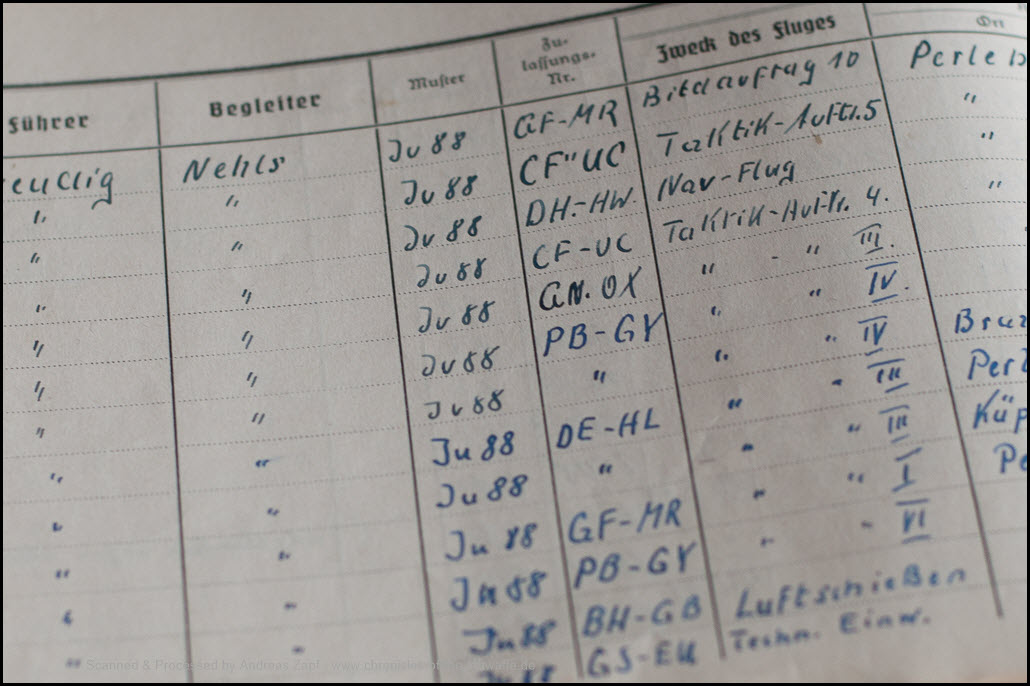 Ort
Führer Begleiter Muster Zu-lassungs-Nr. Zweck des Fluges
eudig Nehls Ju 88 GF-MR Bildauftrag 10 Perleb
" " Ju 88 CF"UC Taktik-Auftr.5 "
" " Ju 88 DH-HW. Nav-Flug "
" " Ju 88 CF-UC Taktik-Auftr. 4. "
" " Ju 88 GN.OX " - " III.
" " Ju 88 PB-GY " " IV.
" " Ju 88 " " " IV
" " Ju 88 DE-HL " " III
" " Ju 88 " " " III
" " Ju 88 GF-MR " " I
" " Ju 88 PB-GY " " VI
" " Ju 88 BH-GB Luftschießen
" " Ju 88 GS-EU Techn. Einw.
Scanned & Processed by Andreas Zapf